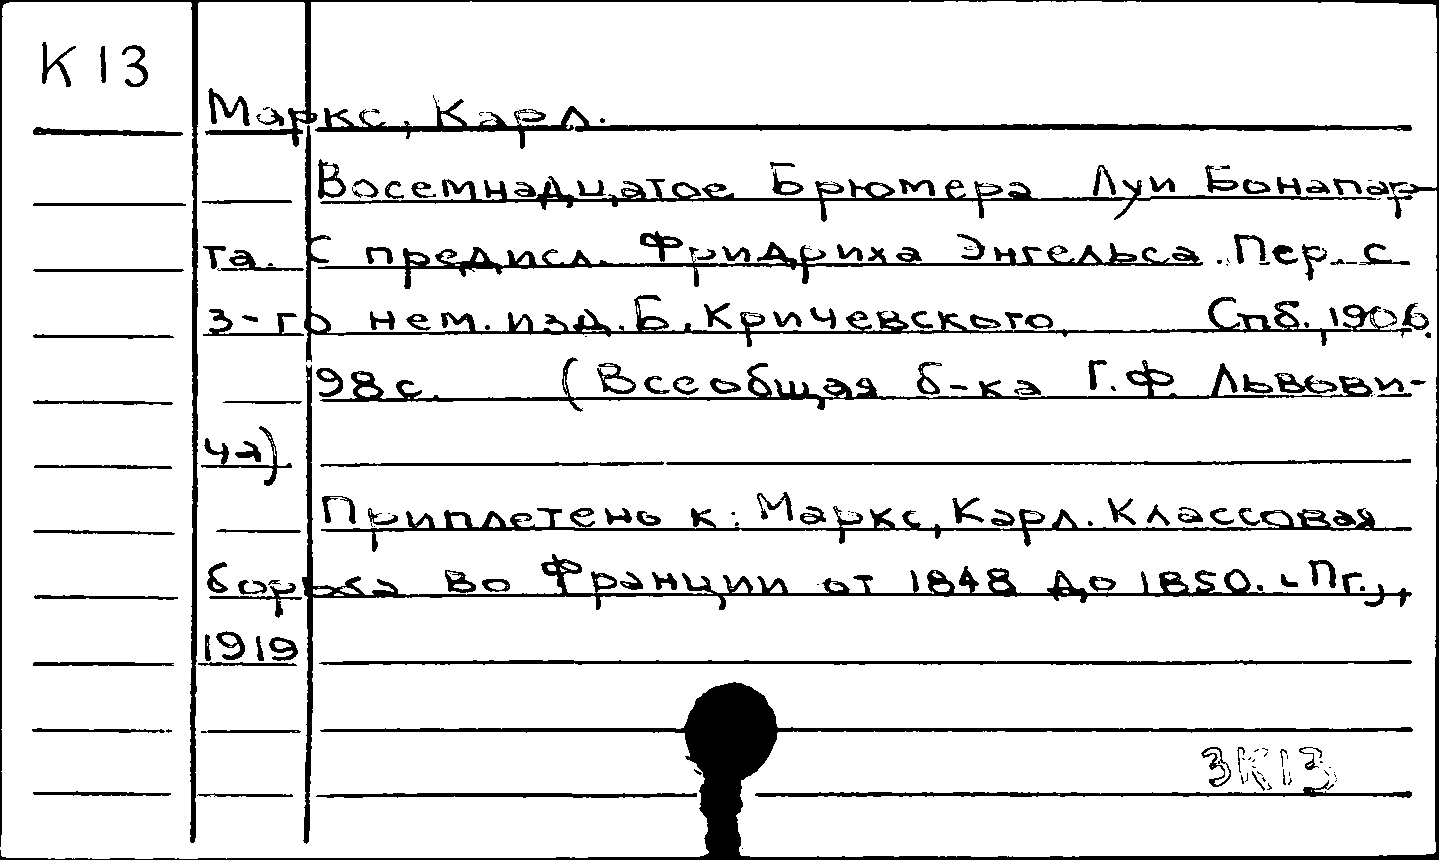 К13
Маркс, Карл.
Восемнадцатое Брюмера Луи Бонапар-
та. С предисл. Фридриха Энгельса. Пер. с
3-го нем. изд. Б. Кричевского. Спб., 1906.
98 с. (Всеобщая б-ка Г. Ф. Львови-
ча).
Приплетено к: Маркс, Карл. Классовая
борьба во Франции от 1848 до 1850. [Пг.],
1919
3К13